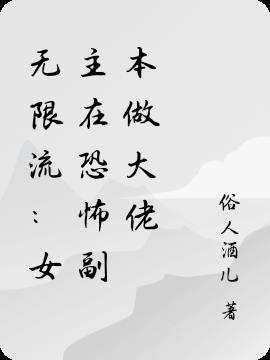 无限流：女
主在恐怖副
本做大佬
俗人酒儿 著